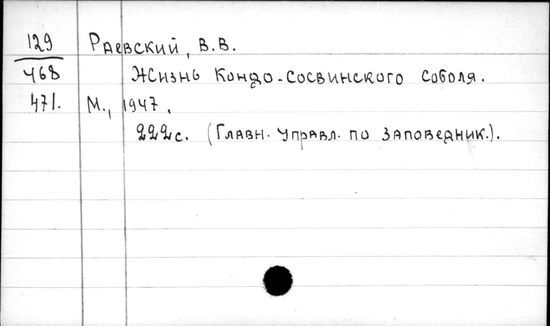 129 Раевский, В.В.
468 Жизнь Кондо-Сосвинского соболя.
471. М., 1947.
222с. (Главн. управл. по заповедник.).